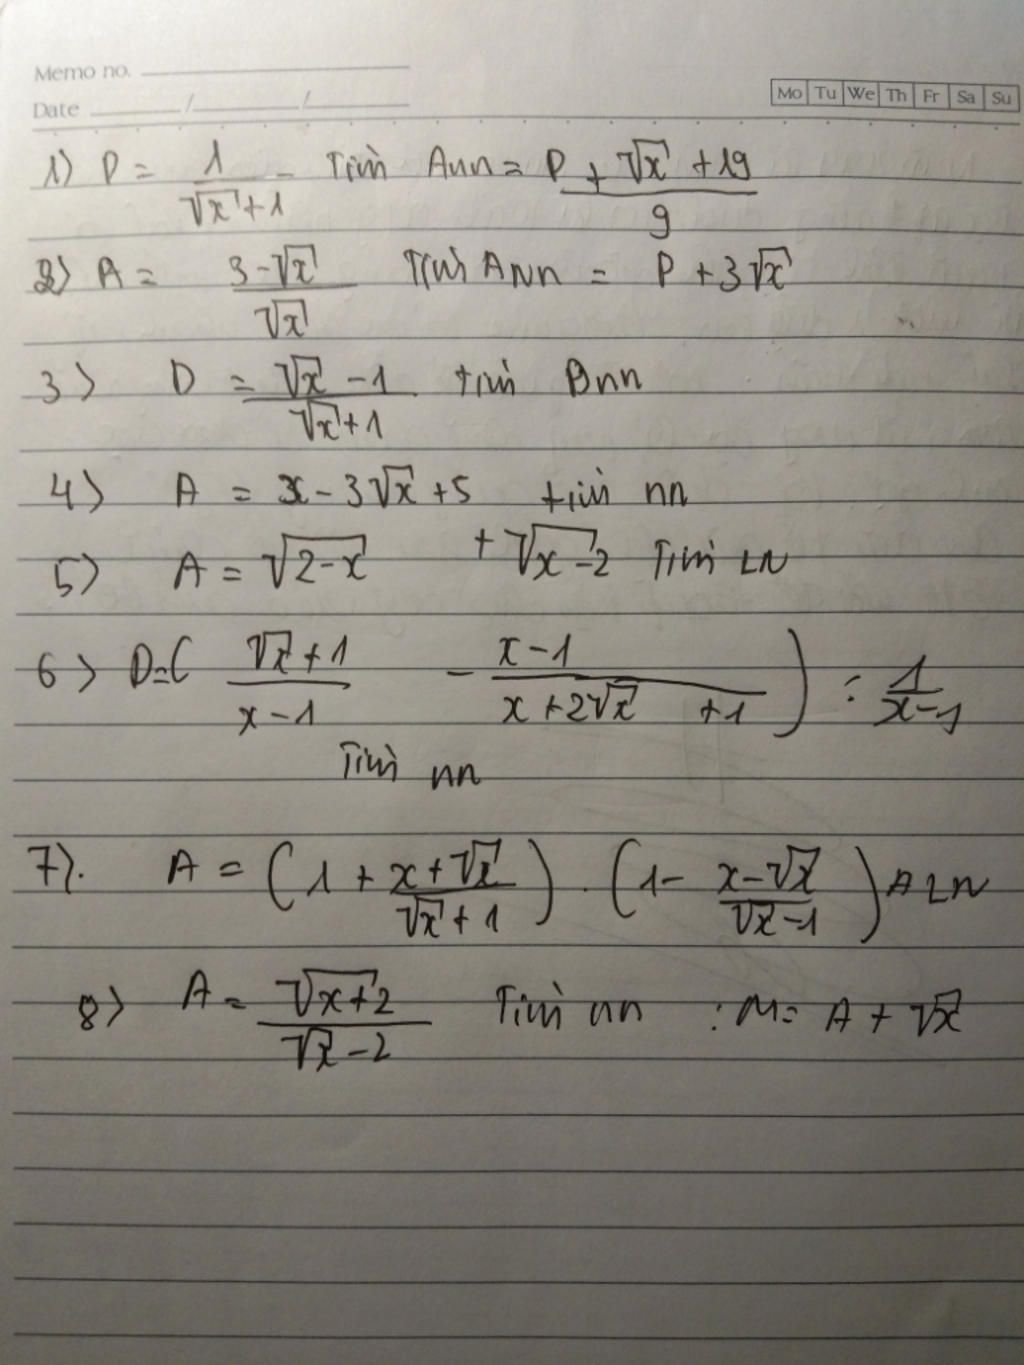 Memo no.
Date / /
Mo Tu We Th Fr Sa Su
1) P = 1/(√x + 1) - Tìm Ann = (P + √x + 19)/9
2) A = (3 - √x)/√x Tìm Ann = P + 3√x
3) D = (√x - 1)/(√x + 1) tìm Bnn
4) A = x - 3√x + 5 tìm nn
5) A = √(2 - x) + √(x - 2) Tìm LN
6) D = ( (√x + 1)/(x - 1) - (x - 1)/(x + 2√x + 1) ) : 1/(x - 1)
Tìm nn
7). A = (1 + (x + √x)/(√x + 1)) . (1 - (x - √x)/(√x - 1)) A LN
8) A = √(x + 2)/(√x - 2) Tìm nn : M = A + √x